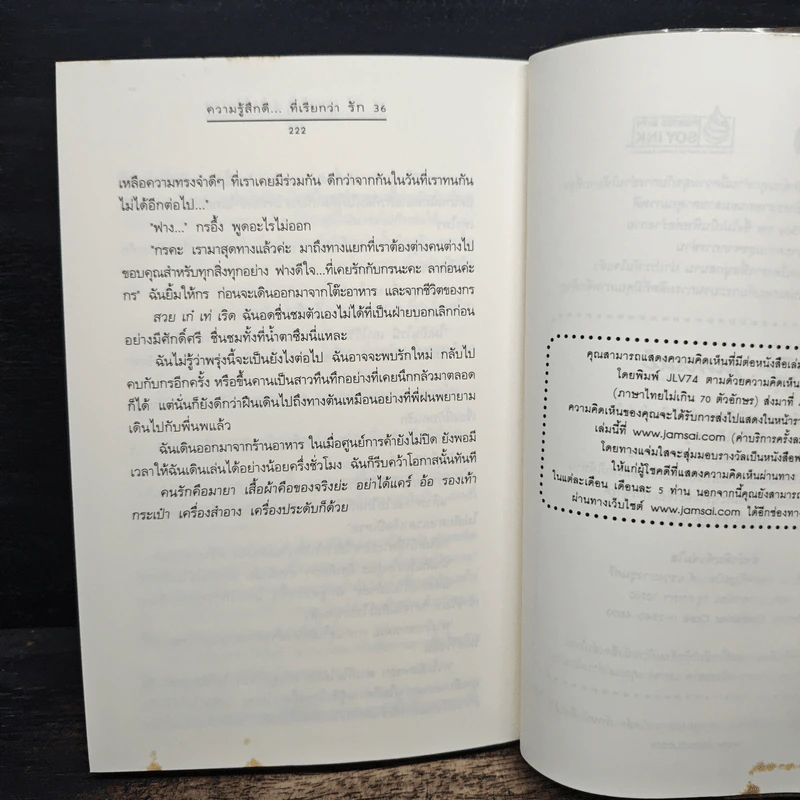 ความรู้สึกดี... ที่เรียกว่า รัก 36
222
เหลือความทรงจำดีๆ ที่เราเคยมีร่วมกัน ดีกว่าจากกันในวันที่เราทนกัน
ไม่ได้อีกต่อไป..."
"ฟาง..." กรอึ้ง พูดอะไรไม่ออก
"กรคะ เรามาสุดทางแล้วค่ะ มาถึงทางแยกที่เราต้องต่างคนต่างไป
ขอบคุณสำหรับทุกสิ่งทุกอย่าง ฟางดีใจ...ที่เคยรักกับกรนะคะ ลาก่อนค่ะ
กร" ฉันยิ้มให้กร ก่อนจะเดินออกมาจากโต๊ะอาหาร และจากชีวิตของกร
สวย เก๋ เท่ เริด ฉันอดชื่นชมตัวเองไม่ได้ที่เป็นฝ่ายบอกเลิกก่อน
อย่างมีศักดิ์ศรี ชื่นชมทั้งที่น้ำตาซึมนี่แหละ
ฉันไม่รู้ว่าพรุ่งนี้จะเป็นยังไงต่อไป ฉันอาจจะพบรักใหม่ กลับไป
คบกับกรอีกครั้ง หรือขึ้นคานเป็นสาวทึนทึกอย่างที่เคยนึกกลัวมาตลอด
ก็ได้ แต่นั่นก็ยังดีกว่าฝืนเดินไปถึงทางตันเหมือนอย่างที่พี่ฝนพยายาม
เดินไปกับพี่นพแล้ว
ฉันเดินออกมาจากร้านอาหาร ในเมื่อศูนย์การค้ายังไม่ปิด ยังพอมี
เวลาให้ฉันเดินเล่นได้อย่างน้อยครึ่งชั่วโมง ฉันก็รีบคว้าโอกาสนั้นทันที
คนรักคือมายา เสื้อผ้าคือของจริงย่ะ อย่าได้แคร์ อ้อ รองเท้า
กระเป๋า เครื่องสำอาง เครื่องประดับก็ด้วย
คุณสามารถแสดงความคิดเห็นที่มีต่อหนังสือเล่ม
โดยพิมพ์ JLV74 ตามด้วยความคิดเห็น
(ภาษาไทยไม่เกิน 70 ตัวอักษร) ส่งมาที่
ความคิดเห็นของคุณจะได้รับการส่งไปแสดงในหน้าราย
เล่มนี้ที่ www.jamsai.com (ค่าบริการครั้งละ
โดยทางแจ่มใสจะสุ่มมอบรางวัลเป็นหนังสือ
ให้แก่ผู้โชคดีที่แสดงความคิดเห็นผ่านทาง
ในแต่ละเดือน เดือนละ 5 ท่าน นอกจากนี้คุณยังสามารถ
ผ่านทางเว็บไซต์ www.jamsai.com ได้อีกช่องทาง